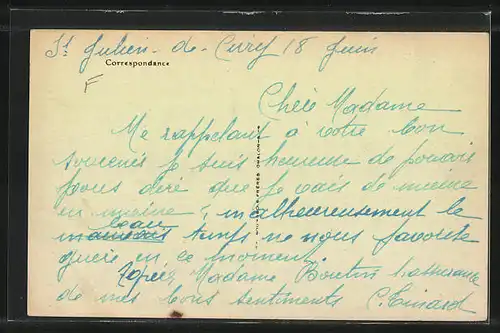 St Julien - de - Civry 18 Juin
Correspondance
F
Chère Madame
Me rappelant à votre bon
souvenir je suis heureuse de pouvoir
vous dire que je vais de mieux
en mieux ; malheureusement le
beau
temps ne nous favorise
guère en ce moment.
Madame Boutin l'assurance
de mes bons sentiments